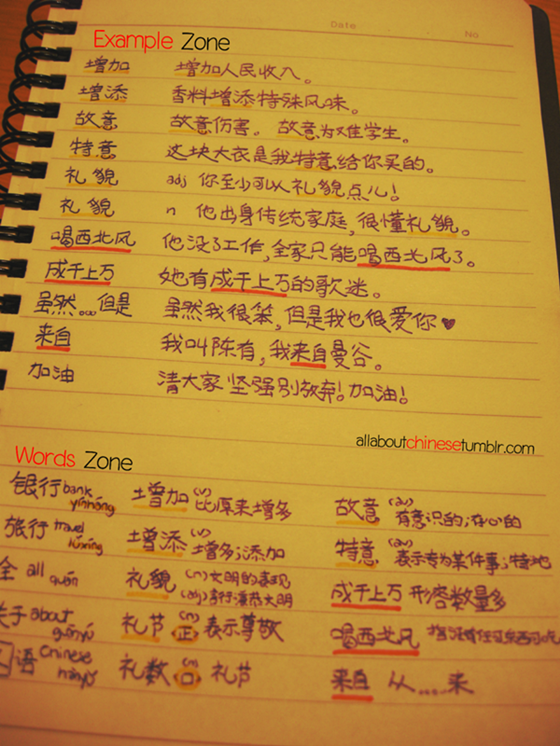 Date
No
Example Zone
增加 增加人民收入。
增添 香料增添特殊风味。
故意 故意伤害。故意为难学生。
特意 这块大衣是我特意给你买的。
礼貌 adj 你至少可以礼貌点儿!
礼貌 n 他出身传统家庭,很懂礼貌。
喝西北风 他没了工作,全家只能喝西北风了。
成千上万 她有成千上万的歌迷。
虽然...但是 虽然我很笨,但是我也很爱你♥
来自 我叫陈有,我来自曼谷。
加油 清大家坚强别放弃!加油!
allaboutchinesetumblr.com
Words Zone
银行 bank yínháng 增加 (v) 比原来增多 故意 (adv) 有意识的;存心的
旅行 travel lǚxíng 增添 (v) 增多;添加 特意 (adv) 表示专为某件事;特地
全 all quán 礼貌 (n) 文明的表现 (adj) 言行谦恭文明 成千上万 形容数量多
关于 about guānyú 礼节 (n) 正 表示尊敬 喝西北风
汉语 Chinese hànyǔ 礼数 (n) 口 礼节 来自 从....来